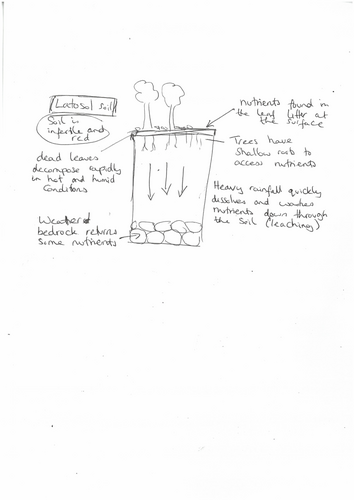 Latosol soil
Soil is
infertile and
red
dead leaves
decompose rapidly
in hot and humid
conditions
Weathered
bedrock returns
some nutrients
nutrients found in
the leaf litter at
the surface
Trees have
shallow roots to
access nutrients
Heavy rainfall quickly
dissolves and washes
nutrients down through
the soil (leaching)